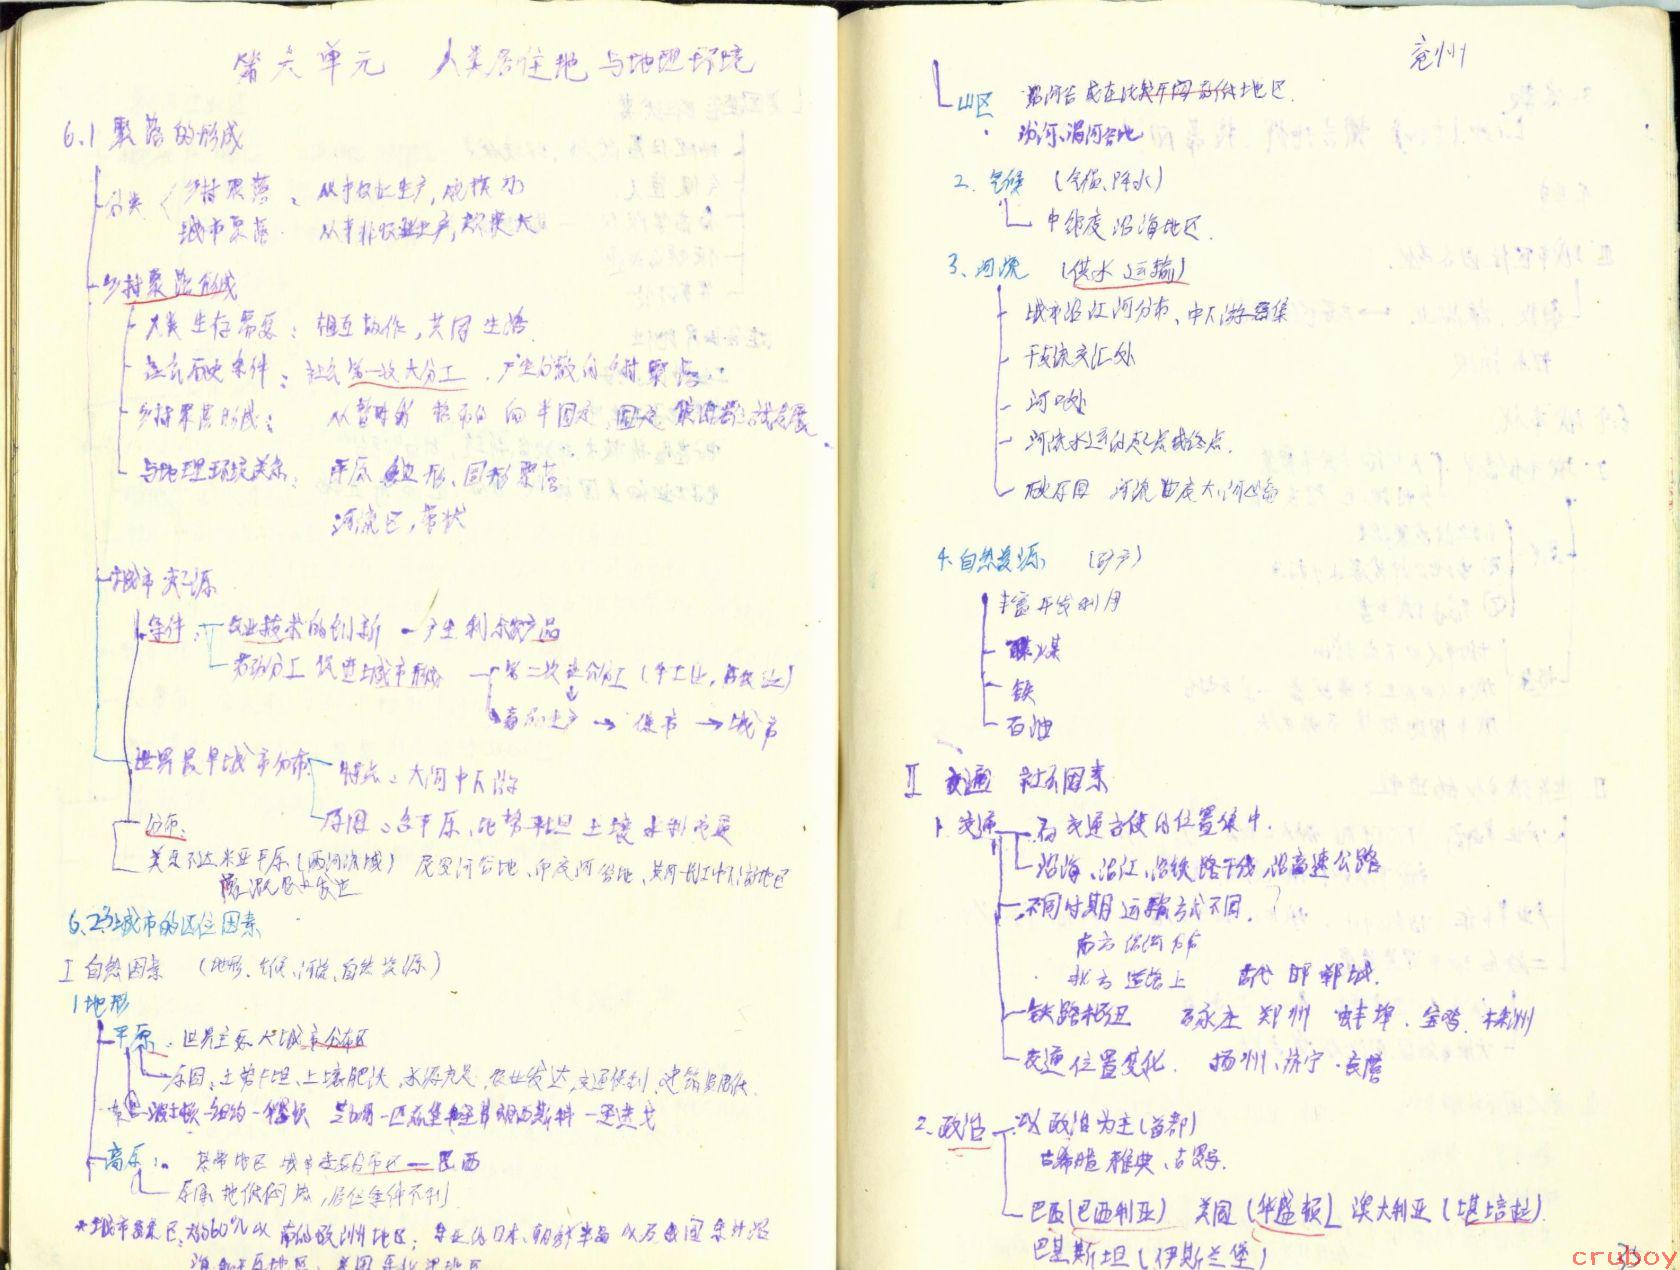 第六单元 人类居住地与地理环境
6.1 聚落的形成
分类 乡村聚落: 从事农业生产,规模小
城市聚落 从事非农业生产,规模大
乡村聚落形成
人类生存需要: 相互协作,共同生活
社会历史条件: 社会第一次大分工,产生的散的乡村聚落.
乡村聚落形成: 从暂时的 移动的 向半固定,固定
与地理环境关系: 平原 圆形聚落
河流区,带状
城市起源
条件: 农业技术的创新 — 产生剩余农产品
劳动分工促进城市形成 — 第二次社会分工 (手工业,
商品生产 → 集市 → 城市
世界最早城市分布 特点: 大河中下游
原因: 冲平原,地势平坦 土壤 水利
分布:
美索不达米亚平原(两河流域) 尼罗河谷地、印度河谷地、黄河长江中下游地区
灌溉农业发达
6.2 城市的区位因素
I 自然因素 (地形、气候、河流、自然资源)
1 地形
平原: 世界主要大城市分布区
原因: 土势平坦,土壤肥沃,水源充足,农业发达,交通便利,建筑费用低.
波士顿—纽约—华盛顿 芝加哥—匹兹堡
高原: 热带地区 城市主要分布区 — 巴西
原因 地低闷热,居住条件不利
*城市密集区: 约60%以南的欧洲地区; 东亚的日本、朝鲜半岛以及我国东外沿
海和平原地区,美国东北部地区
兖州
山区 沿河谷或在比较开阔的低地区.
汾河、渭河谷地
2. 气候 (气温、降水)
中纬度沿海地区.
3、河流 (供水 运输)
城市沿江河分布、中下游密集
干支流交汇处
河口处
河流水运的起点或终点.
破原因 河流曲度大河心岛
4.自然资源 (矿产)
丰富开发利用
煤
铁
石油
II 交通 社会因素
1.交通 — 向交通方便的位置集中.
沿海、沿江、沿铁路干线,沿高速公路
不同时期运输方式不同.
南方 沿河分布
北方 道路上 古代 邯郸城.
铁路枢纽 石家庄 郑州 蚌埠、宝鸡、株洲
交通位置变化. 扬州、济宁、安营
2.政治 — 以政治为主(首都)
古希腊 雅典、古罗马.
巴西(巴西利亚) 美国(华盛顿) 澳大利亚(堪培拉)
巴基斯坦(伊斯兰堡)
cruboy